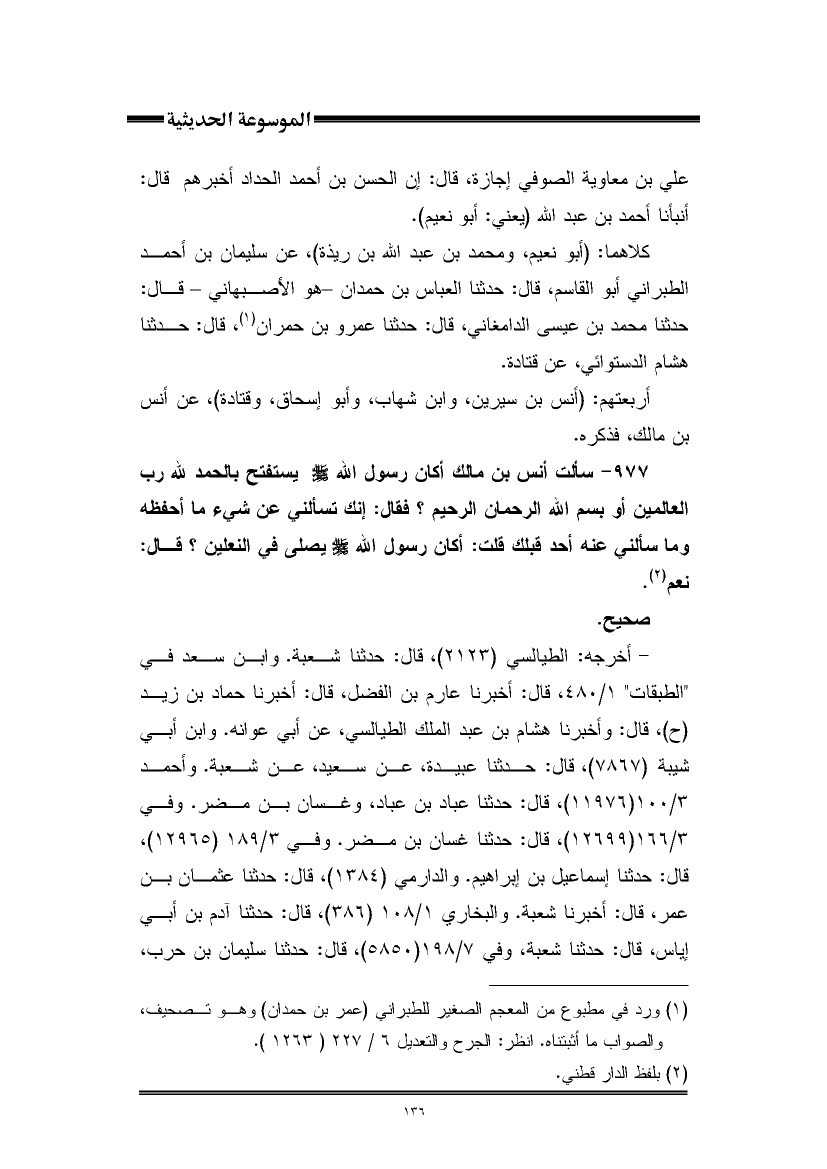 الموسوعة الحديثية
علي بن معاوية الصوفي إجازة، قال: إن الحسن بن أحمد الحداد أخبرهم قال:
أنبأنا أحمد بن عبد الله (يعني: أبو نعيم).
كلاهما: (أبو نعيم، ومحمد بن عبد الله بن ريذة)، عن سليمان بن أحمد
الطبراني أبو القاسم، قال: حدثنا العباس بن حمدان –هو الأصبهاني – قال:
حدثنا محمد بن عيسى الدامغاني، قال: حدثنا عمرو بن حمران(١)، قال: حدثنا
هشام الدستوائي، عن قتادة.
أربعتهم: (أنس بن سيرين، وابن شهاب، وأبو إسحاق، وقتادة)، عن أنس
بن مالك، فذكره.
٩٧٧- سألت أنس بن مالك أكان رسول الله ﷺ يستفتح بالحمد لله رب
العالمين أو بسم الله الرحمان الرحيم ؟ فقال: إنك تسألني عن شيء ما أحفظه
وما سألني عنه أحد قبلك قلت: أكان رسول الله ﷺ يصلى في النعلين ؟ قال:
نعم(٢).
صحيح.
- أخرجه: الطيالسي (٢١٢٣)، قال: حدثنا شعبة. وابن سعد في
"الطبقات" ٤٨٠/١، قال: أخبرنا عارم بن الفضل، قال: أخبرنا حماد بن زيد
(ح)، قال: وأخبرنا هشام بن عبد الملك الطيالسي، عن أبي عوانه. وابن أبي
شيبة (٧٨٦٧)، قال: حدثنا عبيدة، عن سعيد، عن شعبة. وأحمد
١٠٠/٣(١١٩٧٦)، قال: حدثنا عباد بن عباد، وغسان بن مضر. وفي
١٦٦/٣(١٢٦٩٩)، قال: حدثنا غسان بن مضر. وفي ١٨٩/٣ (١٢٩٦٥)،
قال: حدثنا إسماعيل بن إبراهيم. والدارمي (١٣٨٤)، قال: حدثنا عثمان بن
عمر، قال: أخبرنا شعبة. والبخاري ١٠٨/١ (٣٨٦)، قال: حدثنا آدم بن أبي
إياس، قال: حدثنا شعبة، وفي ١٩٨/٧(٥٨٥٠)، قال: حدثنا سليمان بن حرب،
(١) ورد في مطبوع من المعجم الصغير للطبراني (عمر بن حمدان) وهو تصحيف،
والصواب ما أثبتناه. انظر: الجرح والتعديل ٦ / ٢٢٧ ( ١٢٦٣ ).
(٢) بلفظ الدار قطني.
١٣٦